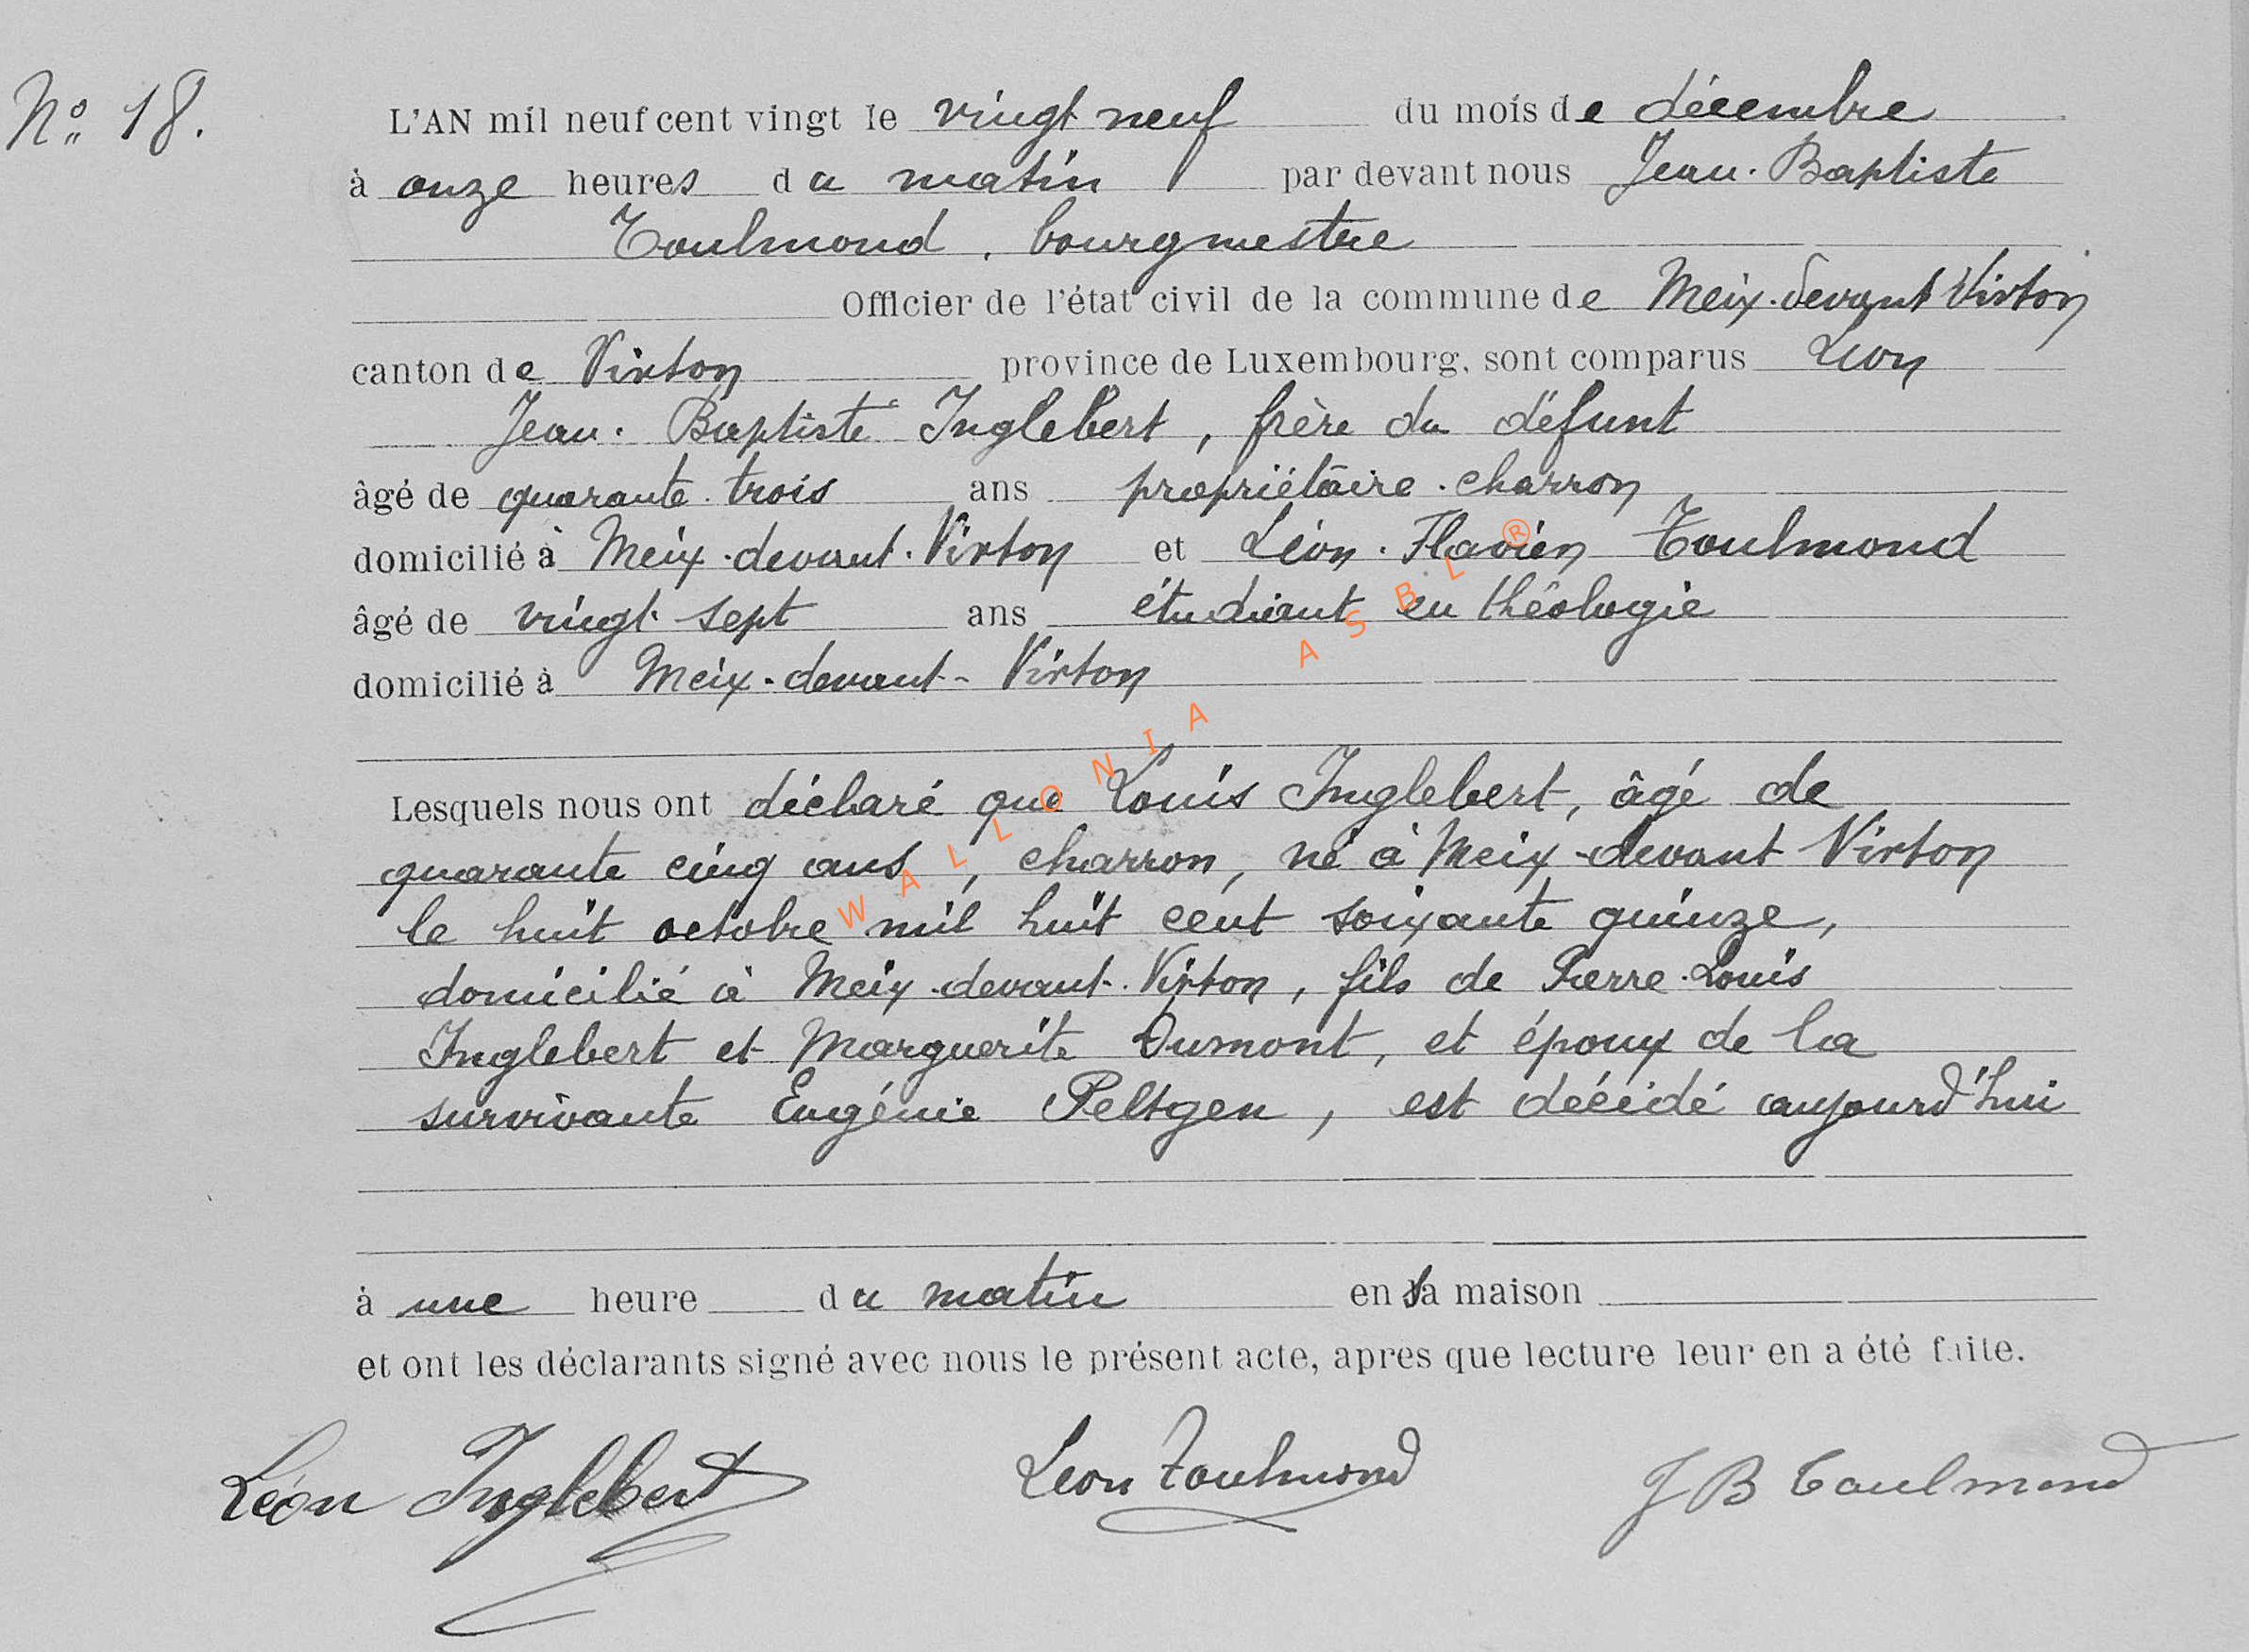 N° 18.
L'AN mil neuf cent vingt le vingt neuf du mois de décembre
à onze heures du matin par devant nous Jean-Baptiste
Toulmond, bourgmestre
Officier de l'état civil de la commune de Meix-devant Virton
canton de Virton province de Luxembourg, sont comparus Léon
Jean-Baptiste Inglebert, frère du défunt
âgé de quarante-trois ans propriétaire-charron
domicilié à Meix-devant-Virton et Léon-Flavien Toulmond
âgé de vingt-sept ans étudiant en théologie
domicilié à Meix-devant-Virton
Lesquels nous ont déclaré que Louis Inglebert, âgé de
quarante cinq ans, charron, né à Meix-devant Virton
le huit octobre mil huit cent soixante quinze,
domicilié à Meix-devant-Virton, fils de Pierre-Louis
Inglebert et Marguerite Dumont, et époux de la
survivante Eugénie Peltgen, est décédé aujourd'hui
à une heure du matin en sa maison
et ont les déclarants signé avec nous le présent acte, apres que lecture leur en a été faite.
Léon Inglebert Léon Toulmond J B Toulmond
WALLONIA ASBL ®